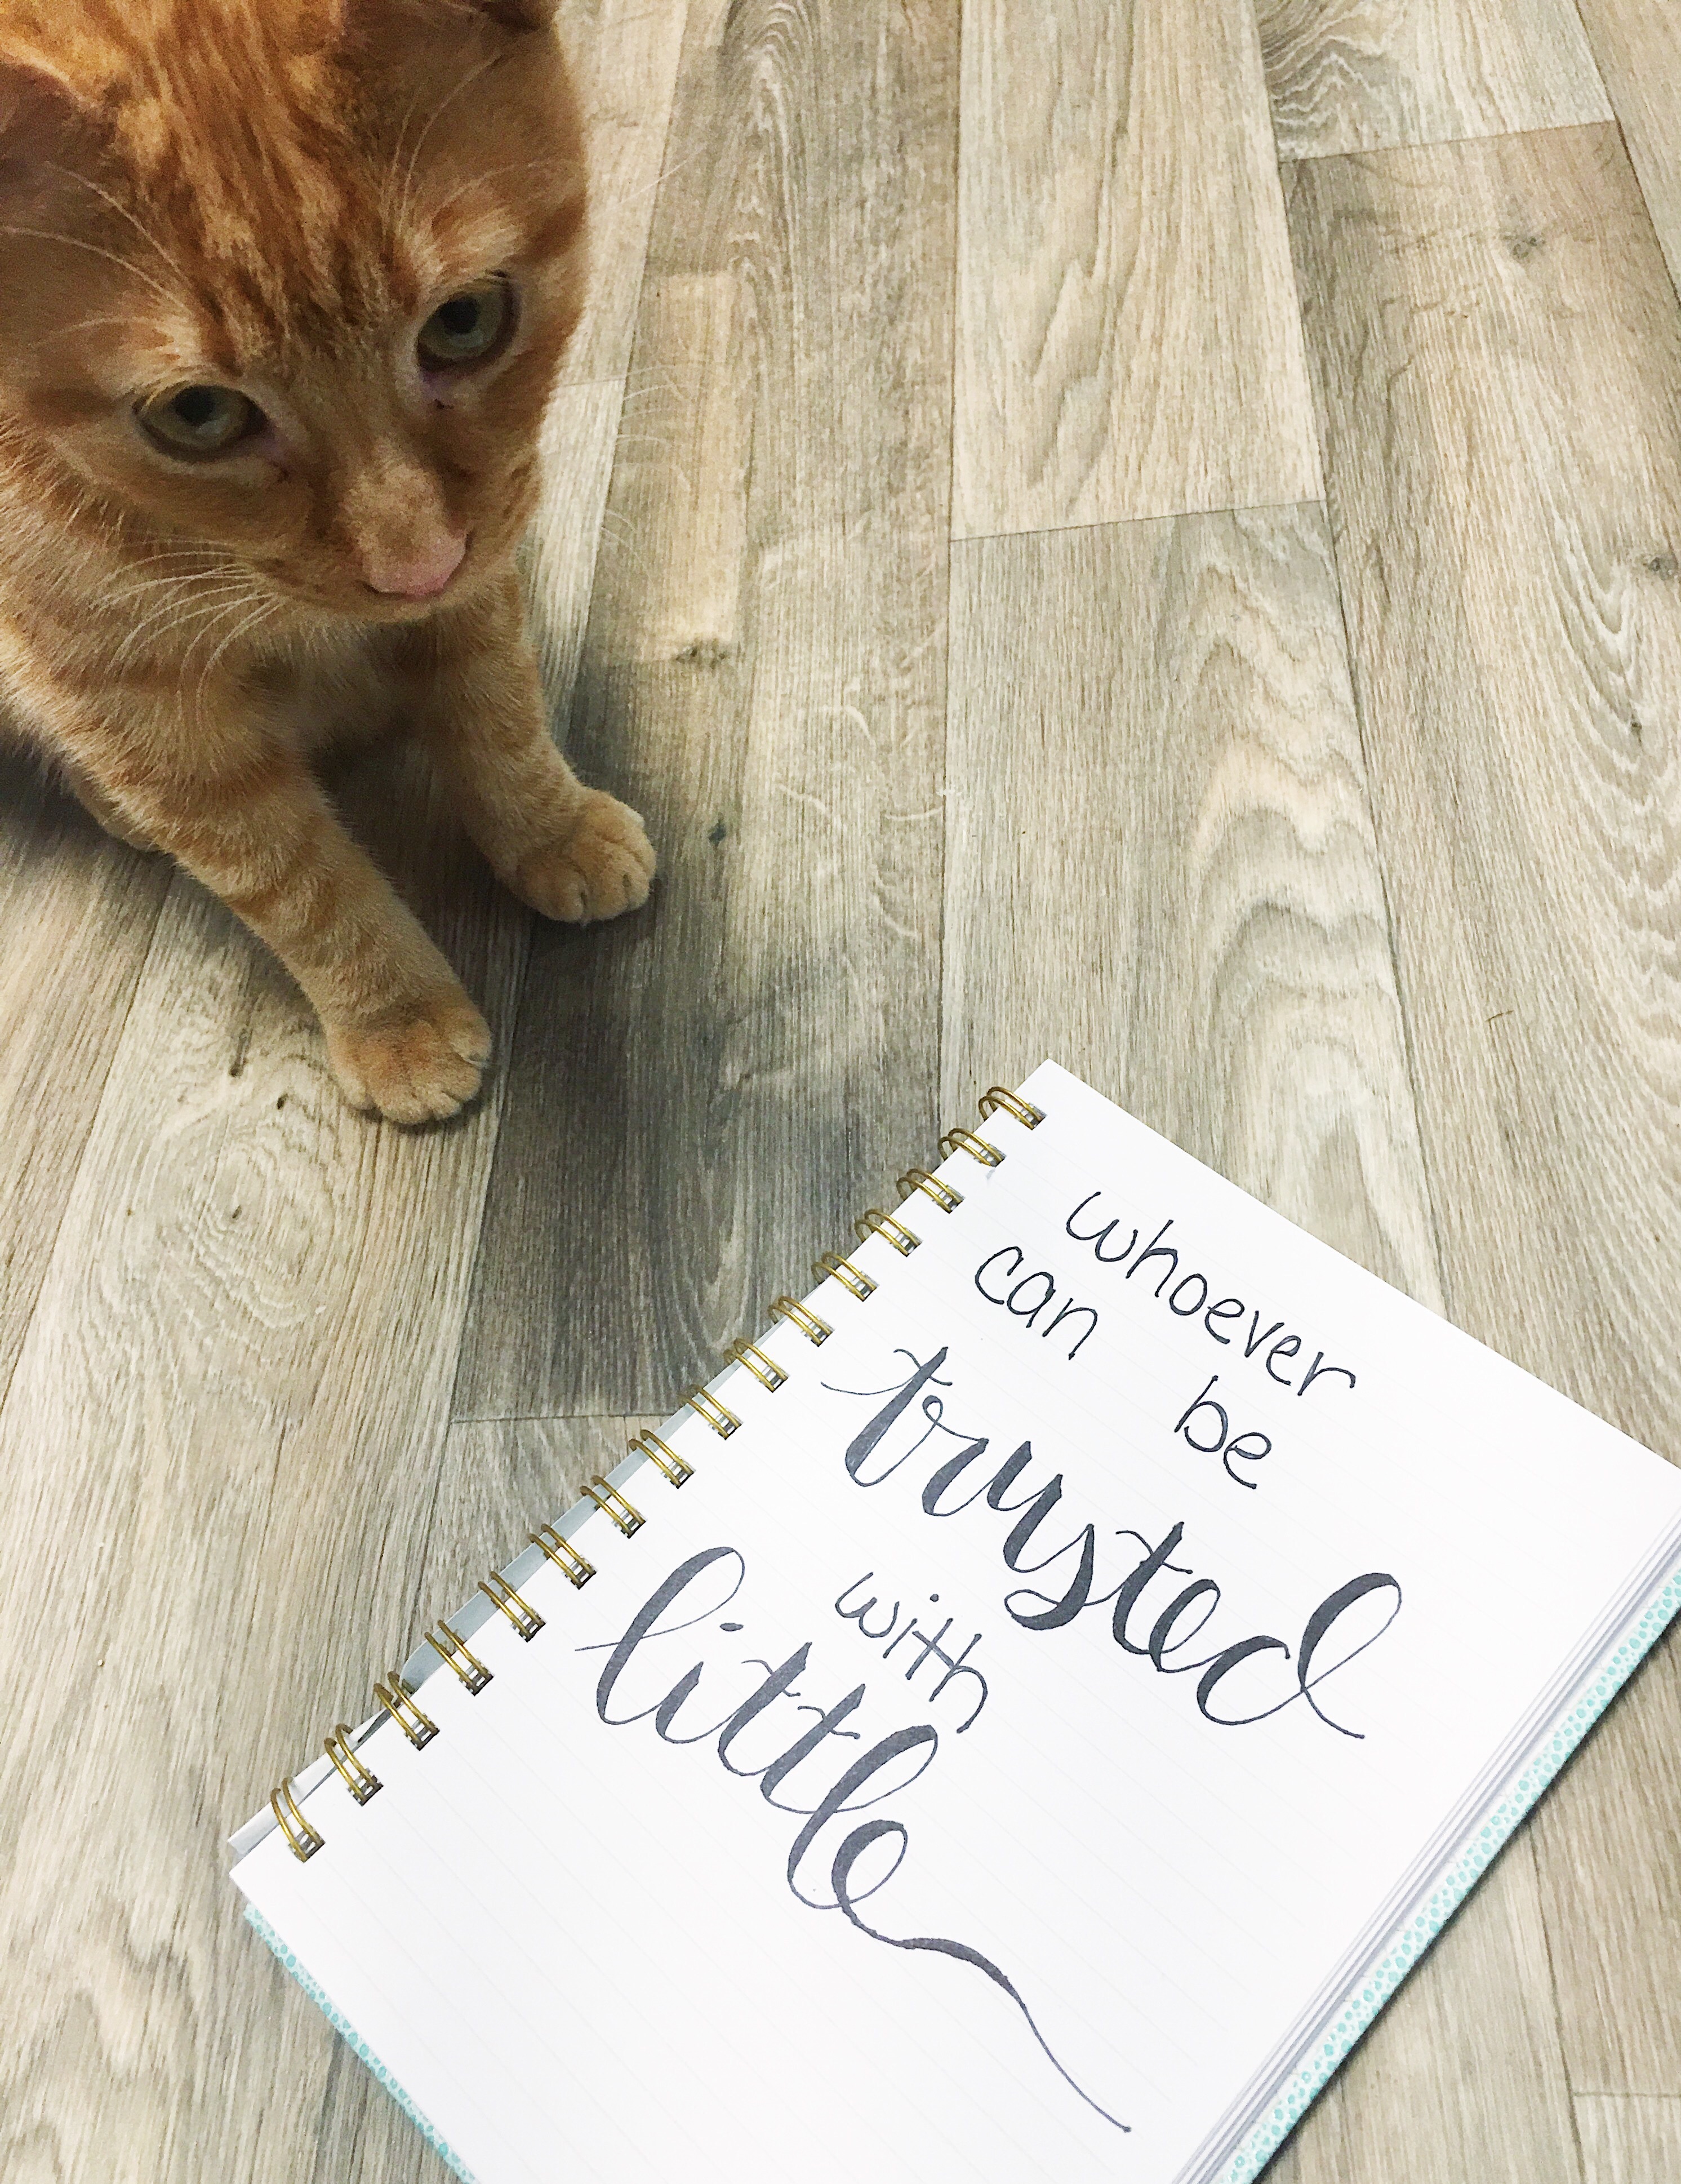 whoever
can be
trusted
with
little